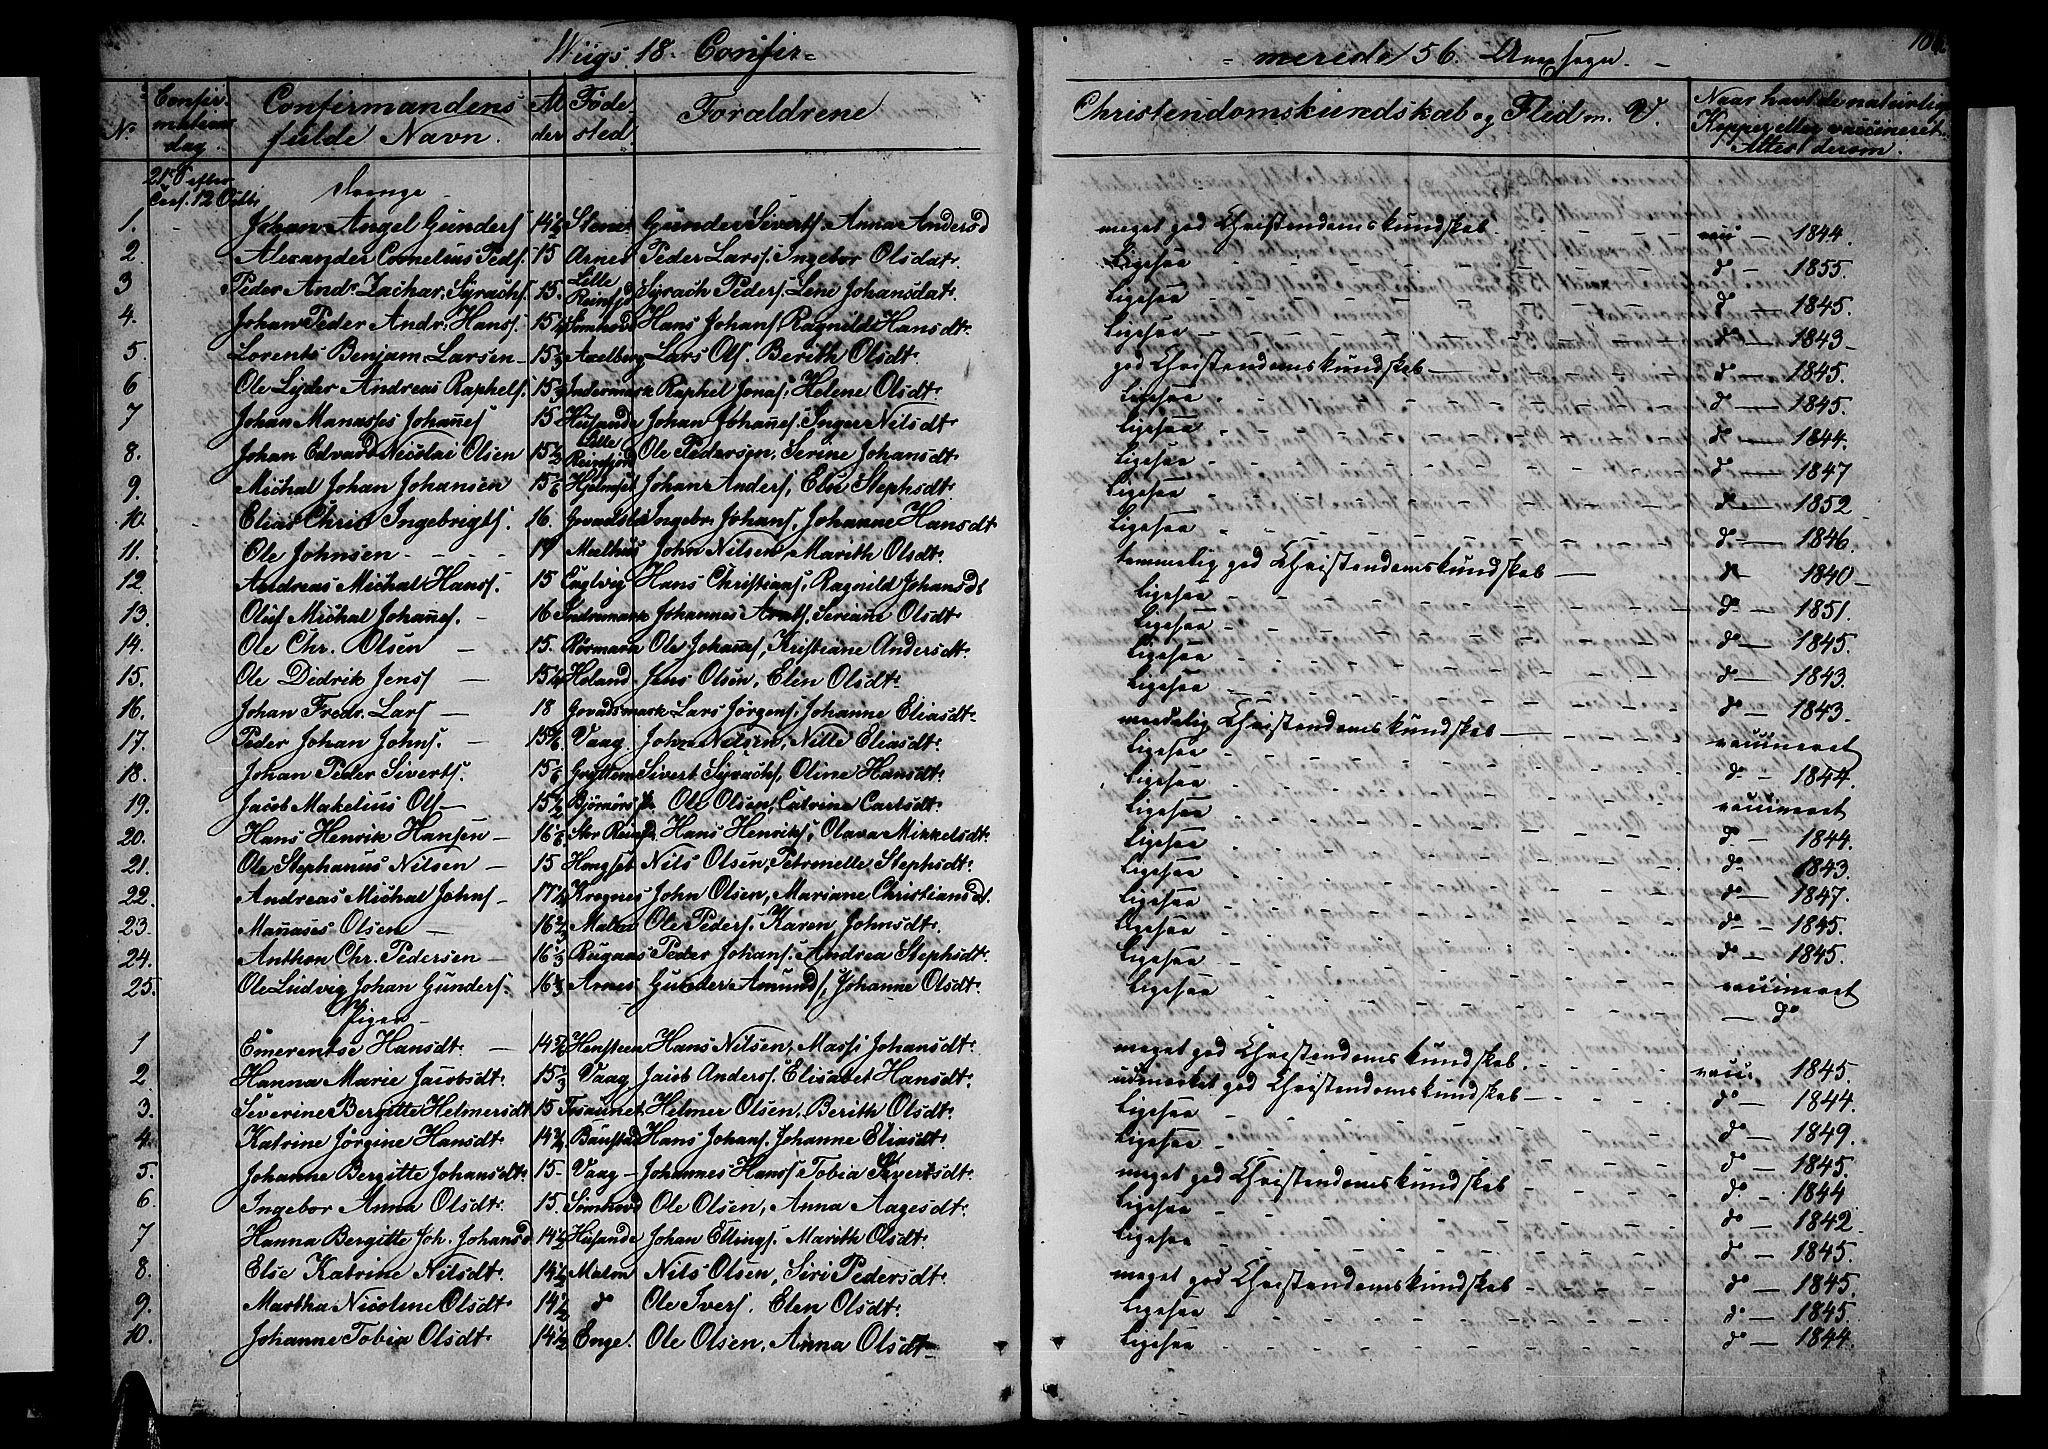 Wiigs. 18 Confir= = merede 56. Anexsogn. 
No. Confirmations dag. Confirmandens fulde Navn. Alder Føde sted. Foraldrene Christendomskundskab og Flid m. V. Naar havt de naturlige Kopper eller vaccineret. Attest derom.
21 S. efter 12 Octb. Drenge
1. Johan Angel Gunders 14½ Stene Gunder Siverts. Anna Andersd meget god Christendomskundskab - vac - 1844.
2 Alexander Cornelius Peds. 15 Arnes Peder Larss. Ingebor Olsdat. Ligesaa - do - 1855.
3 Peder Andr. Zachar. Syrachs. 15. Lille Reinfjd Syrach Peders. Lene Johansdat. Ligesaa - do - 1845.
4. Johan Peder Andr. Hanss. 15¼ Hans Johans, Ragnild Hansdt. Ligesaa - do - 1843
5. Lorents Benjam. Larsen 15⅔ Axelberg Lars Ols. Berith Olsdt. god Christendomskundskab - do - 1845.
6 Ole Lyder Andreas Raphels. Indermark Raphel Jonas. Helene Olsdt. Ligesaa - do - 1845.
7 Johan Manasses Johanes 15 Husande Johan Johanes. Inger Nilsdt Ligesaa - do - 1844.
8. Johan Edvard Nicolai Olsen 15½ Lille Reinfjord Ole Pedersen, Serine Johansdt. Ligesaa - do - 1847
9. Michal Johan Johansen 15 Hjelmset Johan Anders, Elen Stephsdt. Ligesaa - do - 1852
10. Elias Chris Ingebrigts. 16. Ingebr. Johans, Johanne Hansdt Ligesaa - do - 1846.
11. Ole Johnsen - 17 Melhuus John Nilsen, Marith Olsdt. temmelig god Christendomskundskab - do 1840
12. Andreas Michal Hanss. 15 Hans Christians, Ragnild Johansdt Ligesaa - do 1851.
13. Oluf Michal Johanes. - 16 Indremark Johannes Arnts. Seriane Olsdt Ligesaa - do - 1845.
14. Ole Chr. Olsen - 15. Rørmark Ole Johanes, Kristiane Andersdt. Ligesaa - do - 1843.
15. Ole Didrik Jenss - 15¼ Høland Jens Olsen, Elen Olsdt. Ligesaa - do - 1843.
16. Johan Fredr. Lars - 18 Lars Jørgens, Johanne Eliasdt. maadelig Christendomskundskab - vaccineret
17. Peder Johan Johns. - 15 Vaag. John Nilsen, Nille Eliasdt. Ligesaa - do - 1844.
18. Johan Peder Siverts. 15 Sivert Syrachs, Oline Hansdt. Ligesaa vaccineret
19. Jacob Makelius Ols - 15½ Ole Olsen, Catrine Carlsdt. Ligesaa do - 1844.
20. Hans Henrik Hansen - 16 Stor Reinfd. Hans Henriks, Olava Mikkelsdt. Ligesaa do - 1843.
21. Ole Stephanus Nilsen - 15 Hougset Nils Olsen, Petronelle Stephsdt. Ligesaa do - 1847.
22. Andreas Michal Johns - 17½ Krognes John Olsen, Mariane Christiansdt. Ligesaa do - 1845.
23. Manases Olsen - 16½ Malen Ole Peders. Karen Johnsdt. Ligesaa do - 1845.
24. Anthon Chr. Pedersen - 16⅓ Rugaas Peder Johans. Andrea Stephsdt. Ligesaa vaccineret
25. Ole Ludvig Johan Gunders. 16⅔ Arnes Gunder Amunds, Johanne Olsdt. Ligesaa - do
Piger
1 Emerentse Hansdt. - 14½ Hensteen Hans Nilsen, Massi Johansdt. meget god Christendomskundskab. vacc. 1845.
2. Hanna Marie Jacobsdt. 15⅓ Vaag Jacob Anders. Elisabet Hansdt. udmærket god Christendomskundskab - do - 1844.
3. Severine Bergitte Helmersdt. 15 Tøsaunet Helmer Olsen, Berith Olsdt. Ligesaa - do - 1849.
4. Katrine Jørgine Hansdt. Baustad Hans Johans, Johanne Eliasdt. Ligesaa - do - 1845.
5. Johanne Bergitte Johansdt. 15. Vaag - Johannes Hanss. Tobia Sivertsdt. meget god Christendomskundskab do - 1844
6 Ingebor Anna Olsdt. 15. Ole Olsen, Anna Aagesdt. Ligesaa - do - 1842.
7 Hanna Bergitte Joh. Johansd. 14½ Husande Johan Ellings. Marith Olsdt. Ligesaa - do - 1845.
8. Else Katrine Nilsdt. 14½ Malen Nils Olsen, Siri Pedersdt. meget god Christendomskundskab - do - 1845.
9. Martha Nicoline Olsdt. 14½ do Ole Ivers. Elen Olsdt. Ligesaa - do - 1845.
10. Johanne Tobia Olsdt 14½ Enge. Ole Olsen, Anna Olsdt. Ligesaa - do - 1844.